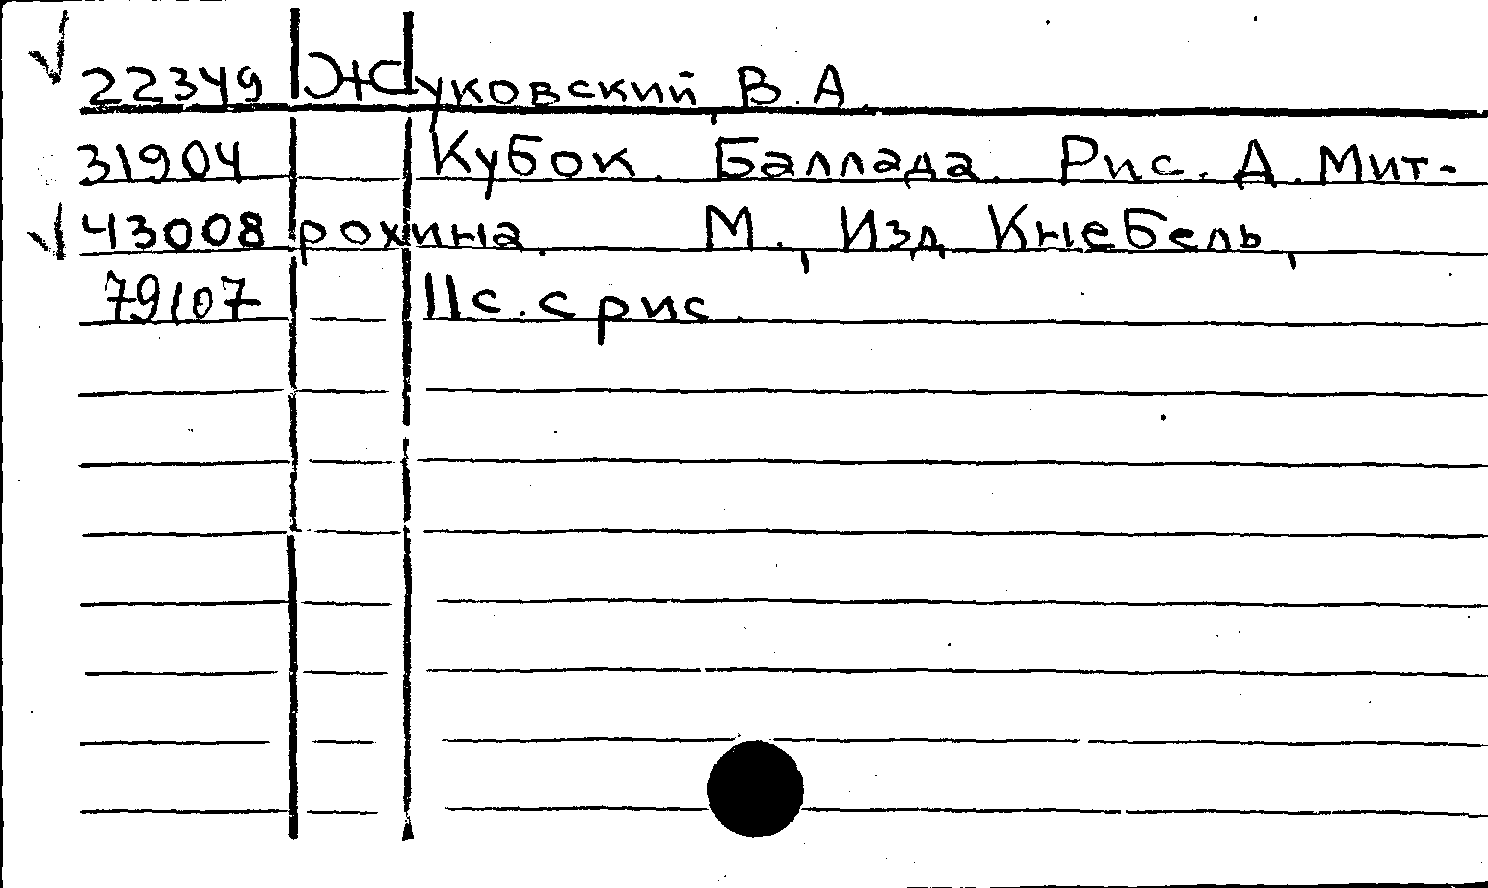 √ 22349 Жуковский, В.А.
31904 Кубок. Баллада. Рис. Д. Мит-
√ 43008 рохина. М., Изд. Кнебель,
79107 11с. с рис.